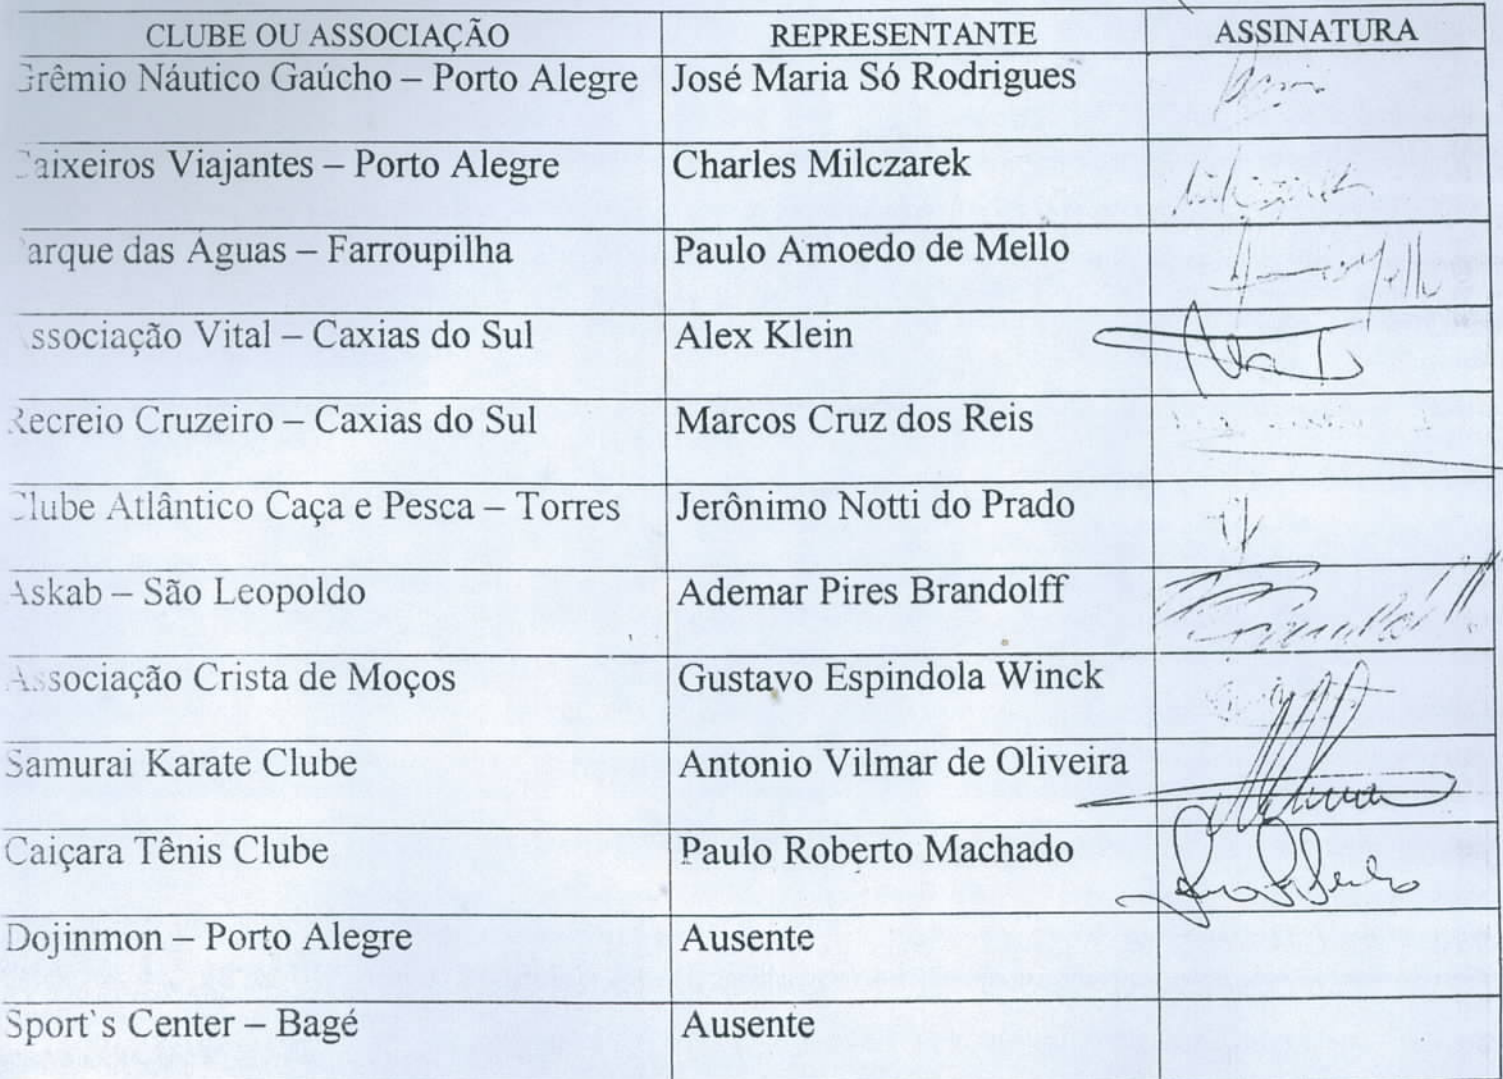 CLUBE OU ASSOCIAÇÃO REPRESENTANTE ASSINATURA
Grêmio Náutico Gaúcho – Porto Alegre José Maria Só Rodrigues
Caixeiros Viajantes – Porto Alegre Charles Milczarek
Parque das Águas – Farroupilha Paulo Amoedo de Mello
Associação Vital – Caxias do Sul Alex Klein
Recreio Cruzeiro – Caxias do Sul Marcos Cruz dos Reis
Clube Atlântico Caça e Pesca – Torres Jerônimo Notti do Prado
Askab – São Leopoldo Ademar Pires Brandolff
Associação Crista de Moços Gustavo Espindola Winck
Samurai Karate Clube Antonio Vilmar de Oliveira
Caiçara Tênis Clube Paulo Roberto Machado
Dojinmon – Porto Alegre Ausente
Sport`s Center – Bagé Ausente